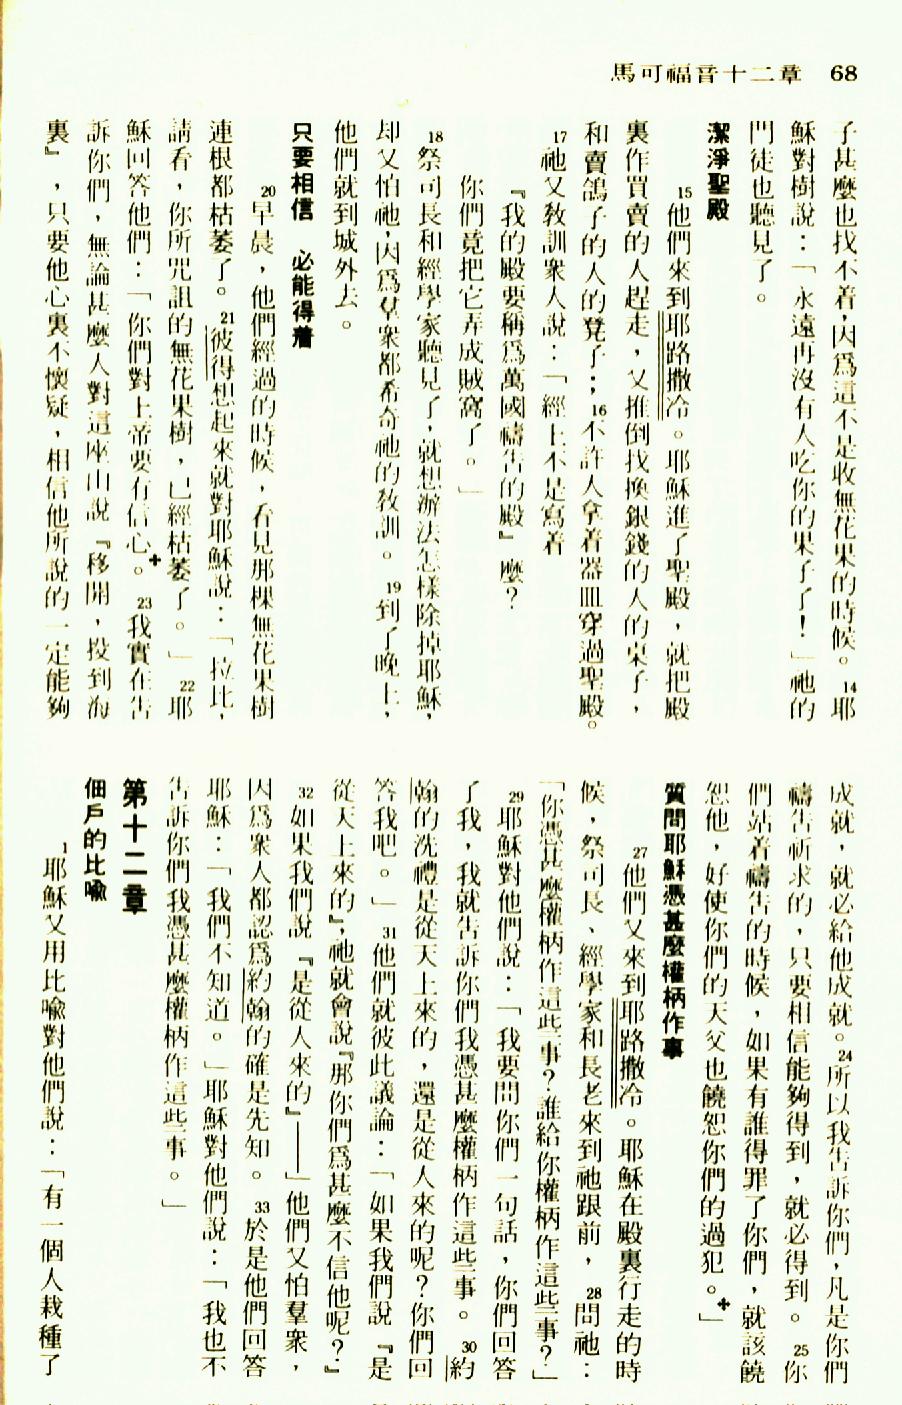 馬可福音十二章 68
子甚麼也找不着,因爲這不是收無花果的時候。14耶
穌對樹說:「永遠再沒有人吃你的果子了!」祂的
門徒也聽見了。
潔淨聖殿
15他們來到耶路撒冷。耶穌進了聖殿,就把殿
裏作買賣的人趕走,又推倒找換銀錢的人的桌子,
和賣鴿子的人的凳子;16不許人拿着器皿穿過聖殿。
17祂又教訓衆人說:「經上不是寫着
『我的殿要稱爲萬國禱告的殿』麼?
你們竟把它弄成賊窩了。」
18祭司長和經學家聽見了,就想辦法怎樣除掉耶穌,
却又怕祂,因爲羣衆都希奇祂的教訓。19到了晚上,
他們就到城外去。
只要相信 必能得着
20早晨,他們經過的時候,看見那棵無花果樹
連根都枯萎了。21彼得想起來就對耶穌說:「拉比,
請看,你所咒詛的無花果樹,已經枯萎了。」22耶
穌回答他們:「你們對上帝要有信心✚。23我實在告
訴你們,無論甚麼人對這座山說『移開,投到海
裏』,只要他心裏不懷疑,相信他所說的一定能夠
成就,就必給他成就。24所以我告訴你們,凡是你們
禱告祈求的,只要相信能夠得到,就必得到。25你
們站着禱告的時候,如果有誰得罪了你們,就該饒
恕他,好使你們的天父也饒恕你們的過犯。✚」
質問耶穌憑甚麼權柄作事
27他們又來到耶路撒冷。耶穌在殿裏行走的時
候,祭司長、經學家和長老來到祂跟前,28問祂:
「你憑甚麼權柄作這些事?誰給你權柄作這些事?」
29耶穌對他們說:「我要問你們一句話,你們回答
了我,我就告訴你們我憑甚麼權柄作這些事。30約
翰的洗禮是從天上來的,還是從人來的呢?你們回
答我吧。」31他們就彼此議論:「如果我們說『是
從天上來的』,祂就會說『那你們爲甚麼不信他呢?』
32如果我們說『是從人來的』——」他們又怕羣衆,
因爲衆人都認爲約翰的確是先知。33於是他們回答
耶穌:「我們不知道。」耶穌對他們說:「我也不
告訴你們我憑甚麼權柄作這些事。」
第十二章
佃戶的比喩
1耶穌又用比喩對他們說:「有一個人栽種了